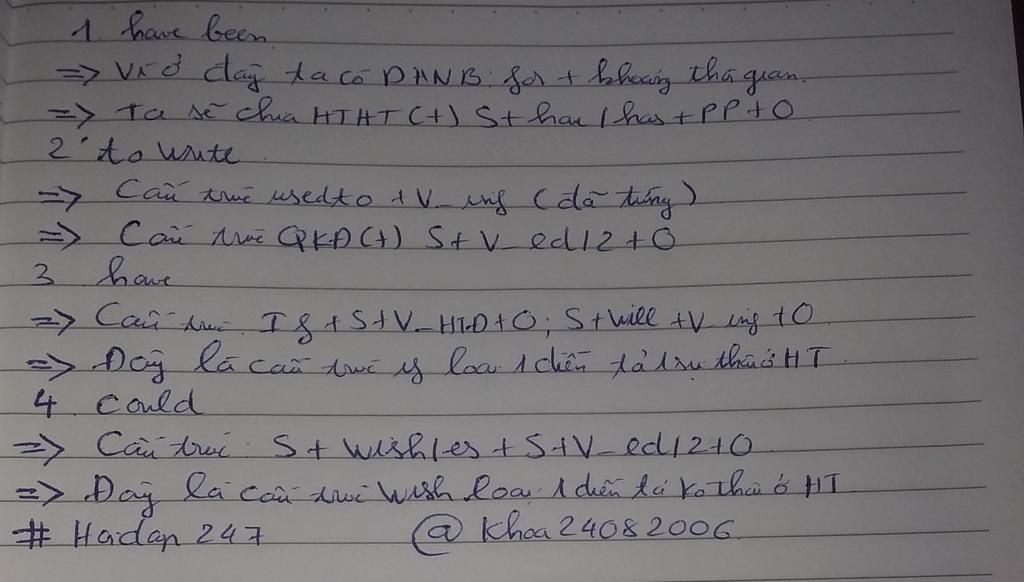 1. have been
=> Vì ở đây ta có DHNB: for + khoảng thời gian.
=> Ta sẽ chia HTHT (+) S + have / has + PP + O
2. to write
=> Cấu trúc used to + V_ing (đã từng)
=> Cấu trúc QKĐ (+) S + V_ed/2 + O
3 have
=> Cấu trúc: If + S + V_HTĐ + O; S + will + V_ing + O
=> Đây là cấu trúc if loại 1 diễn tả 1 sự thật ở HT
4. Could
=> Cấu trúc: S + wish/es + S + V_ed/2 + O
=> Đây là cấu trúc wish loại 1 diễn tả ko thật ở HT
# Hoidap 247 @ Khoa24082006